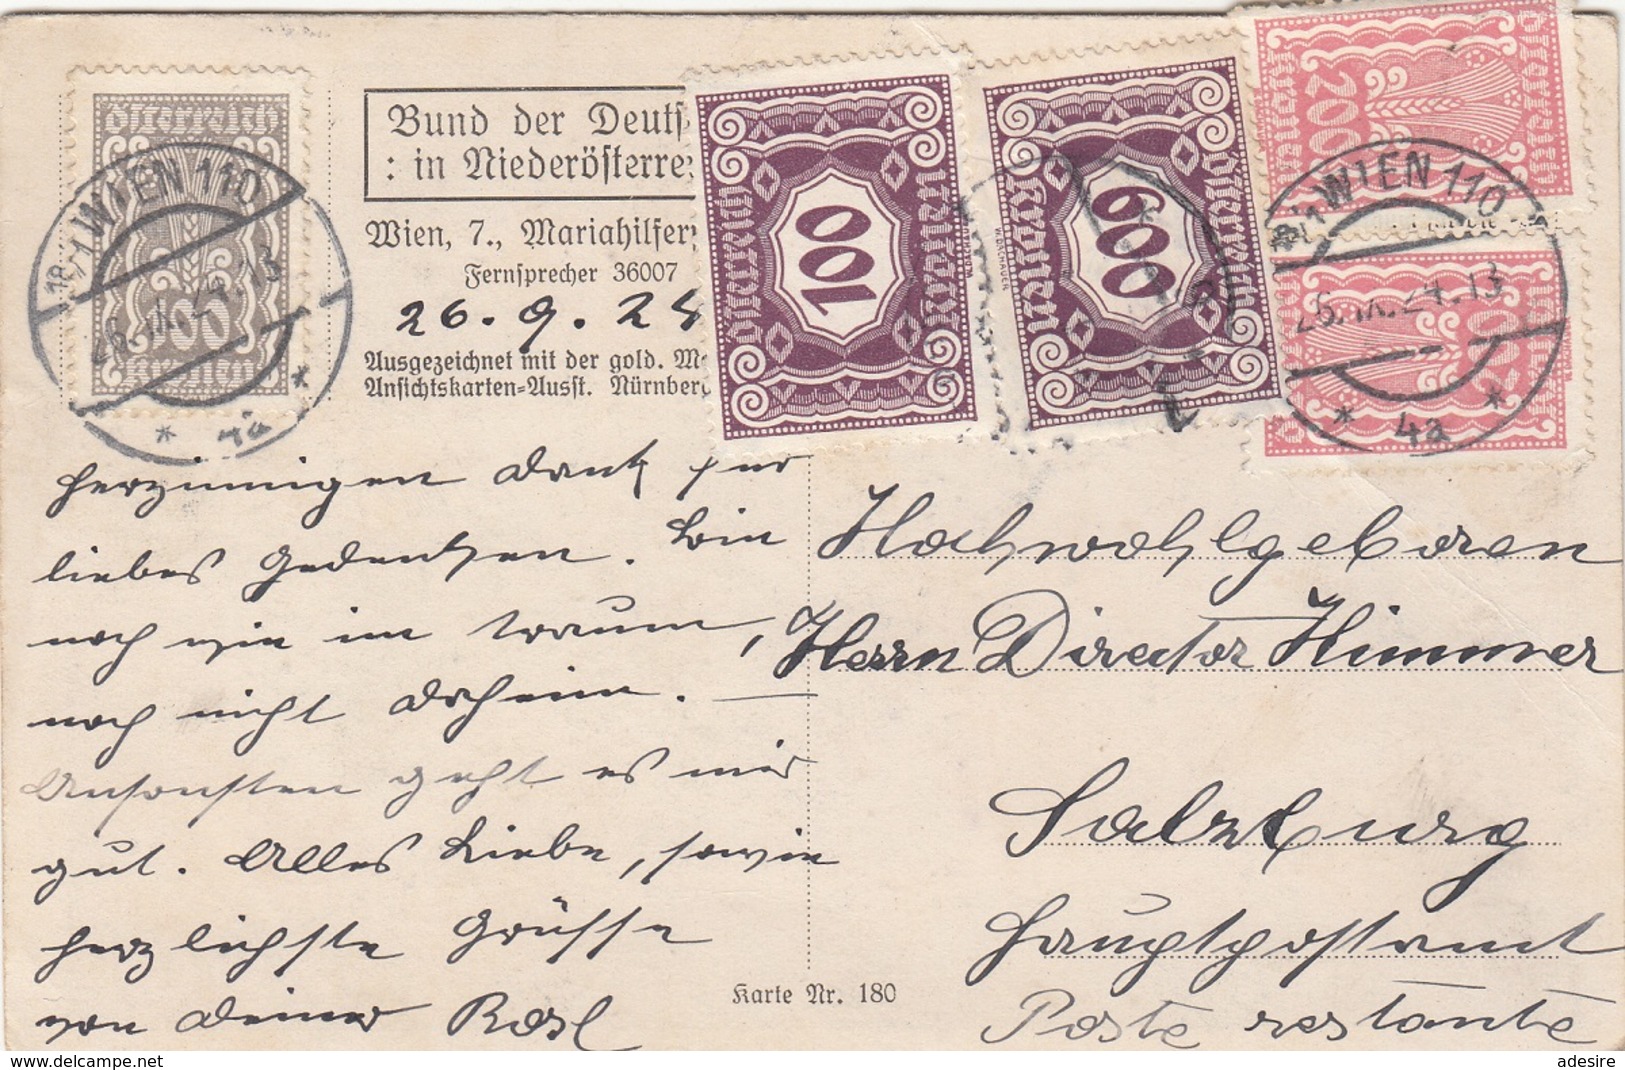 Bund der Deutſ
: in Niederöſterre
Wien, 7., Mariahilfer
Fernſprecher 36007
26. 9. 24
Ausgezeichnet mit der gold. Me
Anſichtskarten=Ausſt. Nürnberg
Öſterreich
100
Kronen
18/1 WIEN 110
26.IX.24.13
* 4a *
Öſterreich
100
Porto
Öſterreich
600
Porto
W. DACHAUER
200
Kronen
Öſterreich
18/1 WIEN 110
26.IX.24.13
* 4a *
herzinnigen Dank für
liebes Gedenken. Bin
noch wie im Traum,
noch nicht daheim. —
Ansonsten geht es mir
gut. Alles Liebe, sowie
herzlichste Grüsse
von deiner Rosl
Hochwohlgeboren
Herrn Director Himmer
Salzburg
Hauptpostamt
Poste restante
Karte Nr. 180
delcampe.net
adesire